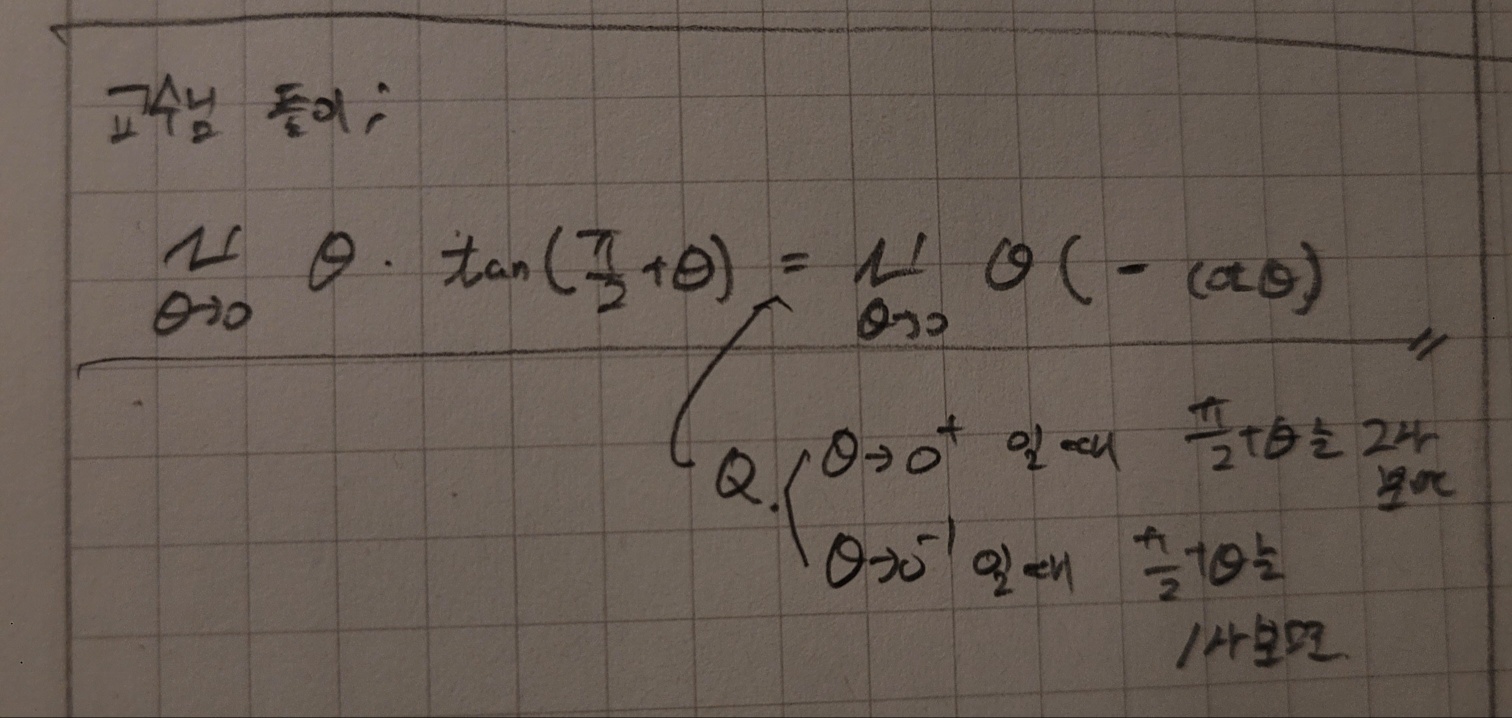 교수님 풀이;
lim θ→0 θ · tan(π/2 + θ) = lim θ→0 θ(- cotθ)
Q. θ→0⁺ 일 때 π/2+θ는 2사분면
θ→0⁻ 일 때 π/2+θ는
1사분면